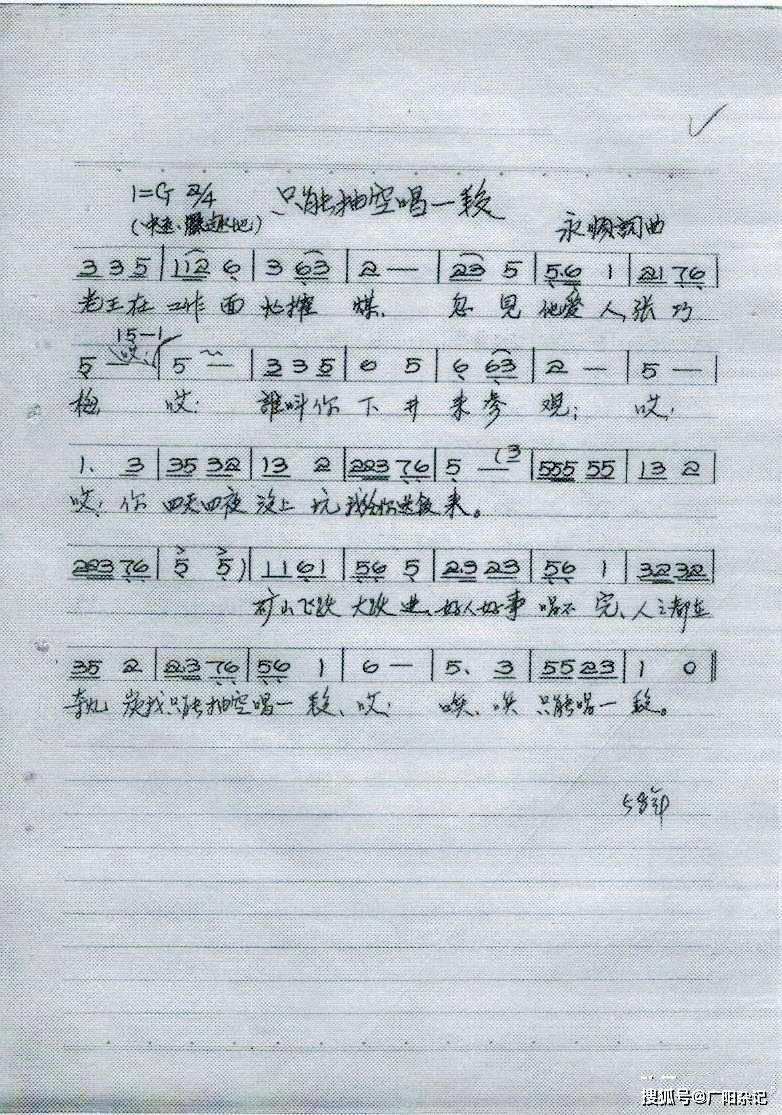 1=G 2/4 只能抽空唱一段
(中速、 地) 永顺詞曲
3 3 5 | 112 6 | 3 63 | 2 — | 23 5 | 5.6 1 | 21 76 |
老王在工作面 忙 煤、 忽見他愛人張巧
15—1
哎:
5 — | 5 — | 3 3 5 | 6 5 | 6 63 | 2 — | 5 — |
梅 哎: 誰叫你下井来参观; 哎:
1. 3 | 35 32 | 13 2 | 223 76 | 5 — (3 | 555 55 | 13 2 |
哎: 你四天四夜没上坑我给你送飯来。
223 76 | 5 5) | 11 61 | 56 5 | 23 23 | 56 1 | 32 32 |
矿山飞跃大跃进、好人好事唱不完、人々都在
35 2 | 23 76 | 56 1 | 6 — | 5. 3 | 55 23 | 1 0 ‖
炭我只能抽空唱一段、哎: 唉、唉只能唱一段。
58年
搜狐号@广阳杂记